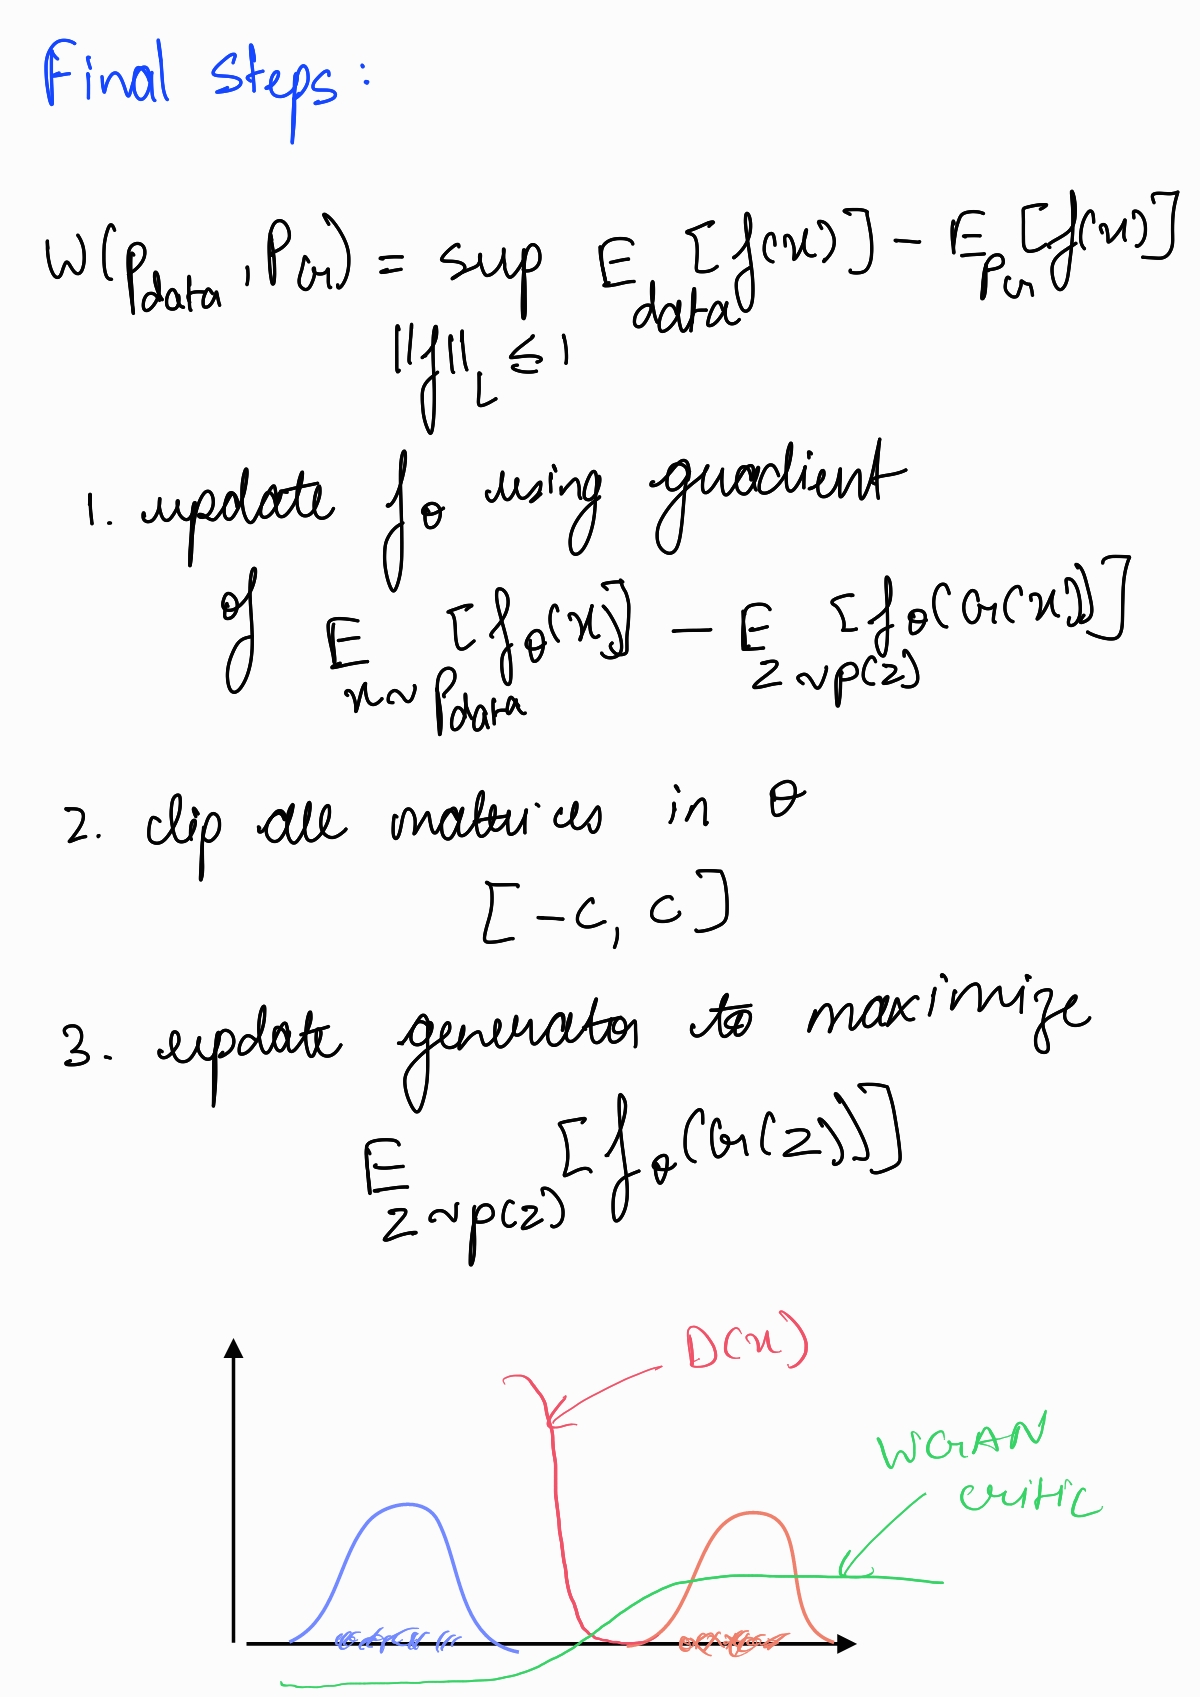 Final Steps:
W(P_data, P_G) = sup E_data [f(x)] - E_{P_G} [f(x)]
||f||_L ≤ 1
1. update f_θ using gradient
of E_{x~P_data} [f_θ(x)] - E_{z~p(z)} [f_θ(G(x))]
2. clip all matrices in θ
[-c, c]
3. update generator to maximize
E_{z~p(z)} [f_θ(G(z))]
D(x)
WGAN
critic